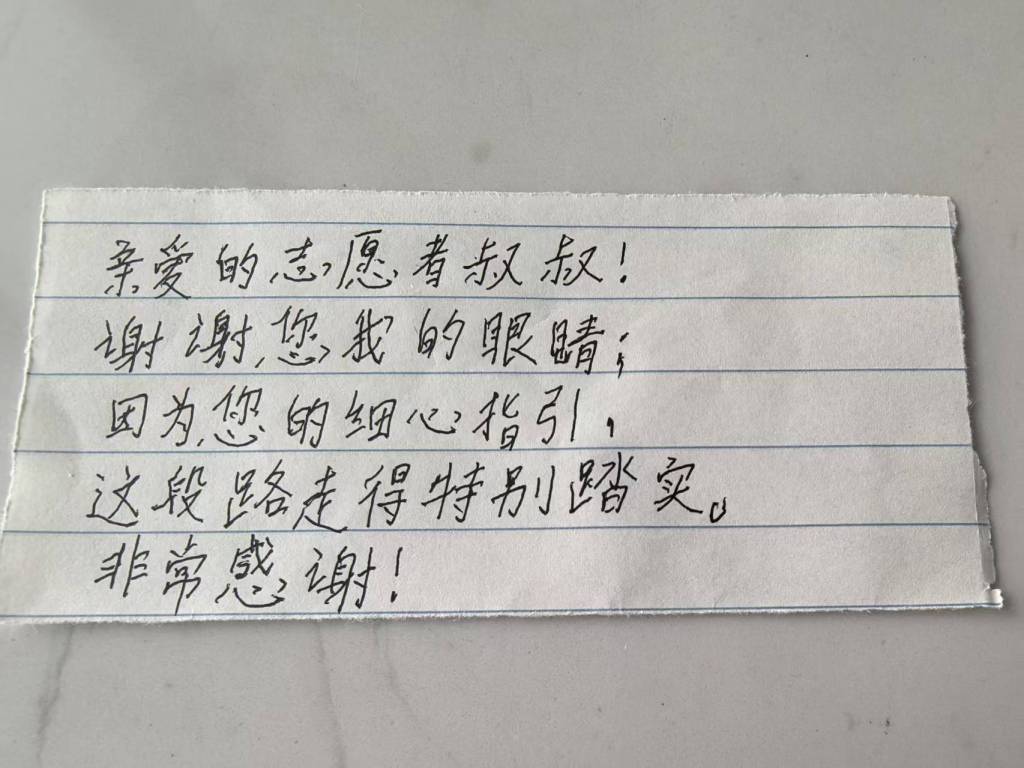 亲愛的志愿者叔叔！
谢谢您我的眼睛；
因为您的细心指引，
这段路走得特别踏实。
非常感谢！